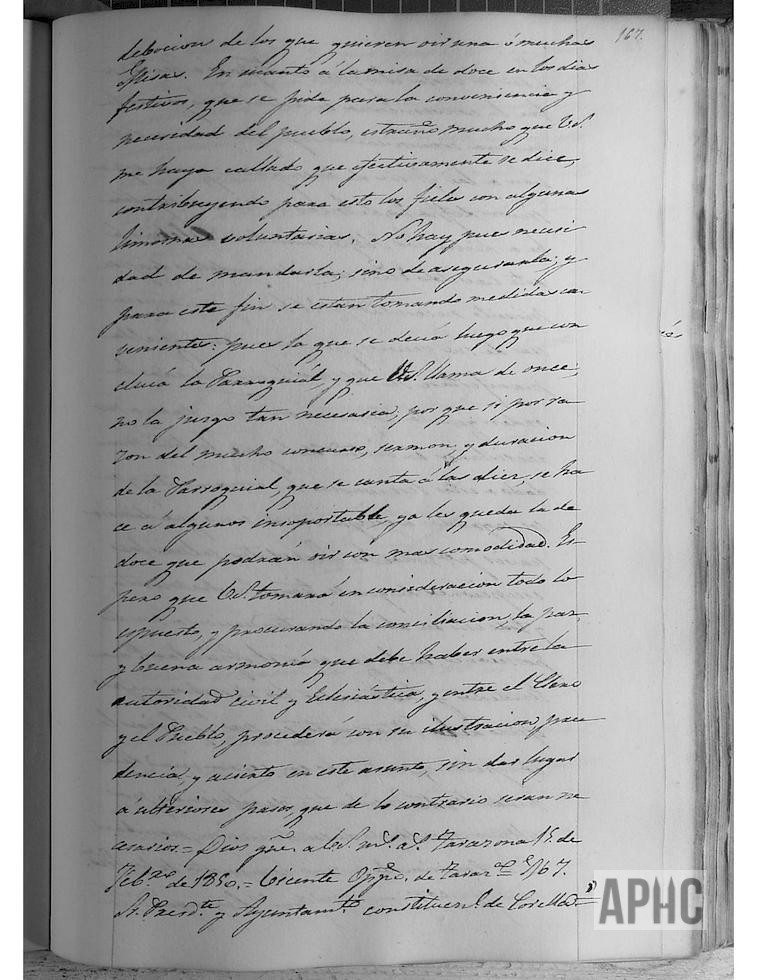 167.
debocion de los que quieren oir una ó muchas
Misas. En cuanto á la misa de doce en los dias
festivos, que se pide para la conveniencia y
necesidad del pueblo, estraño mucho que V.S.
me haya callado que efectivamente se dice,
contribuyendo para esto los fieles con algunas
limosnas voluntarias. No hay pues necesi
dad de mandarla; sino de asegurarla; y
para este fin se estan tomando medidas con
venientes: pues la que se decia luego que con
cluia la Parroquial, y que V.S. llama de once,
no la juzgo tan necesaria, porque si por ra
zon del mucho concurso, sermon, y duracion
de la Parroquial, que se canta á las diez, se ha
ce á algunos insoportable, ya les queda la de
doce que podrán oir con mas comodidad. Es-
pero que V.S. tomará en consideracion todo lo
espuesto, y procurando la conciliacion, la paz,
y buena armonía que debe haber entre la
autoridad civil y Eclesiástica, y entre el Clero
y el Pueblo, procederá con su ilustracion, pru
dencia, y acierto en este asunto, sin dar lugar
á ulteriores pasos, que de lo contrario seran ne
cesarios. = Dios gue. a V.S. ms. as. Tarazona 15 de
Febro. de 1850. = Vicente Obpo. de Tarazna.
Sr. Presdte. y Ayuntamto. constitucnl. de Corella =
APHC